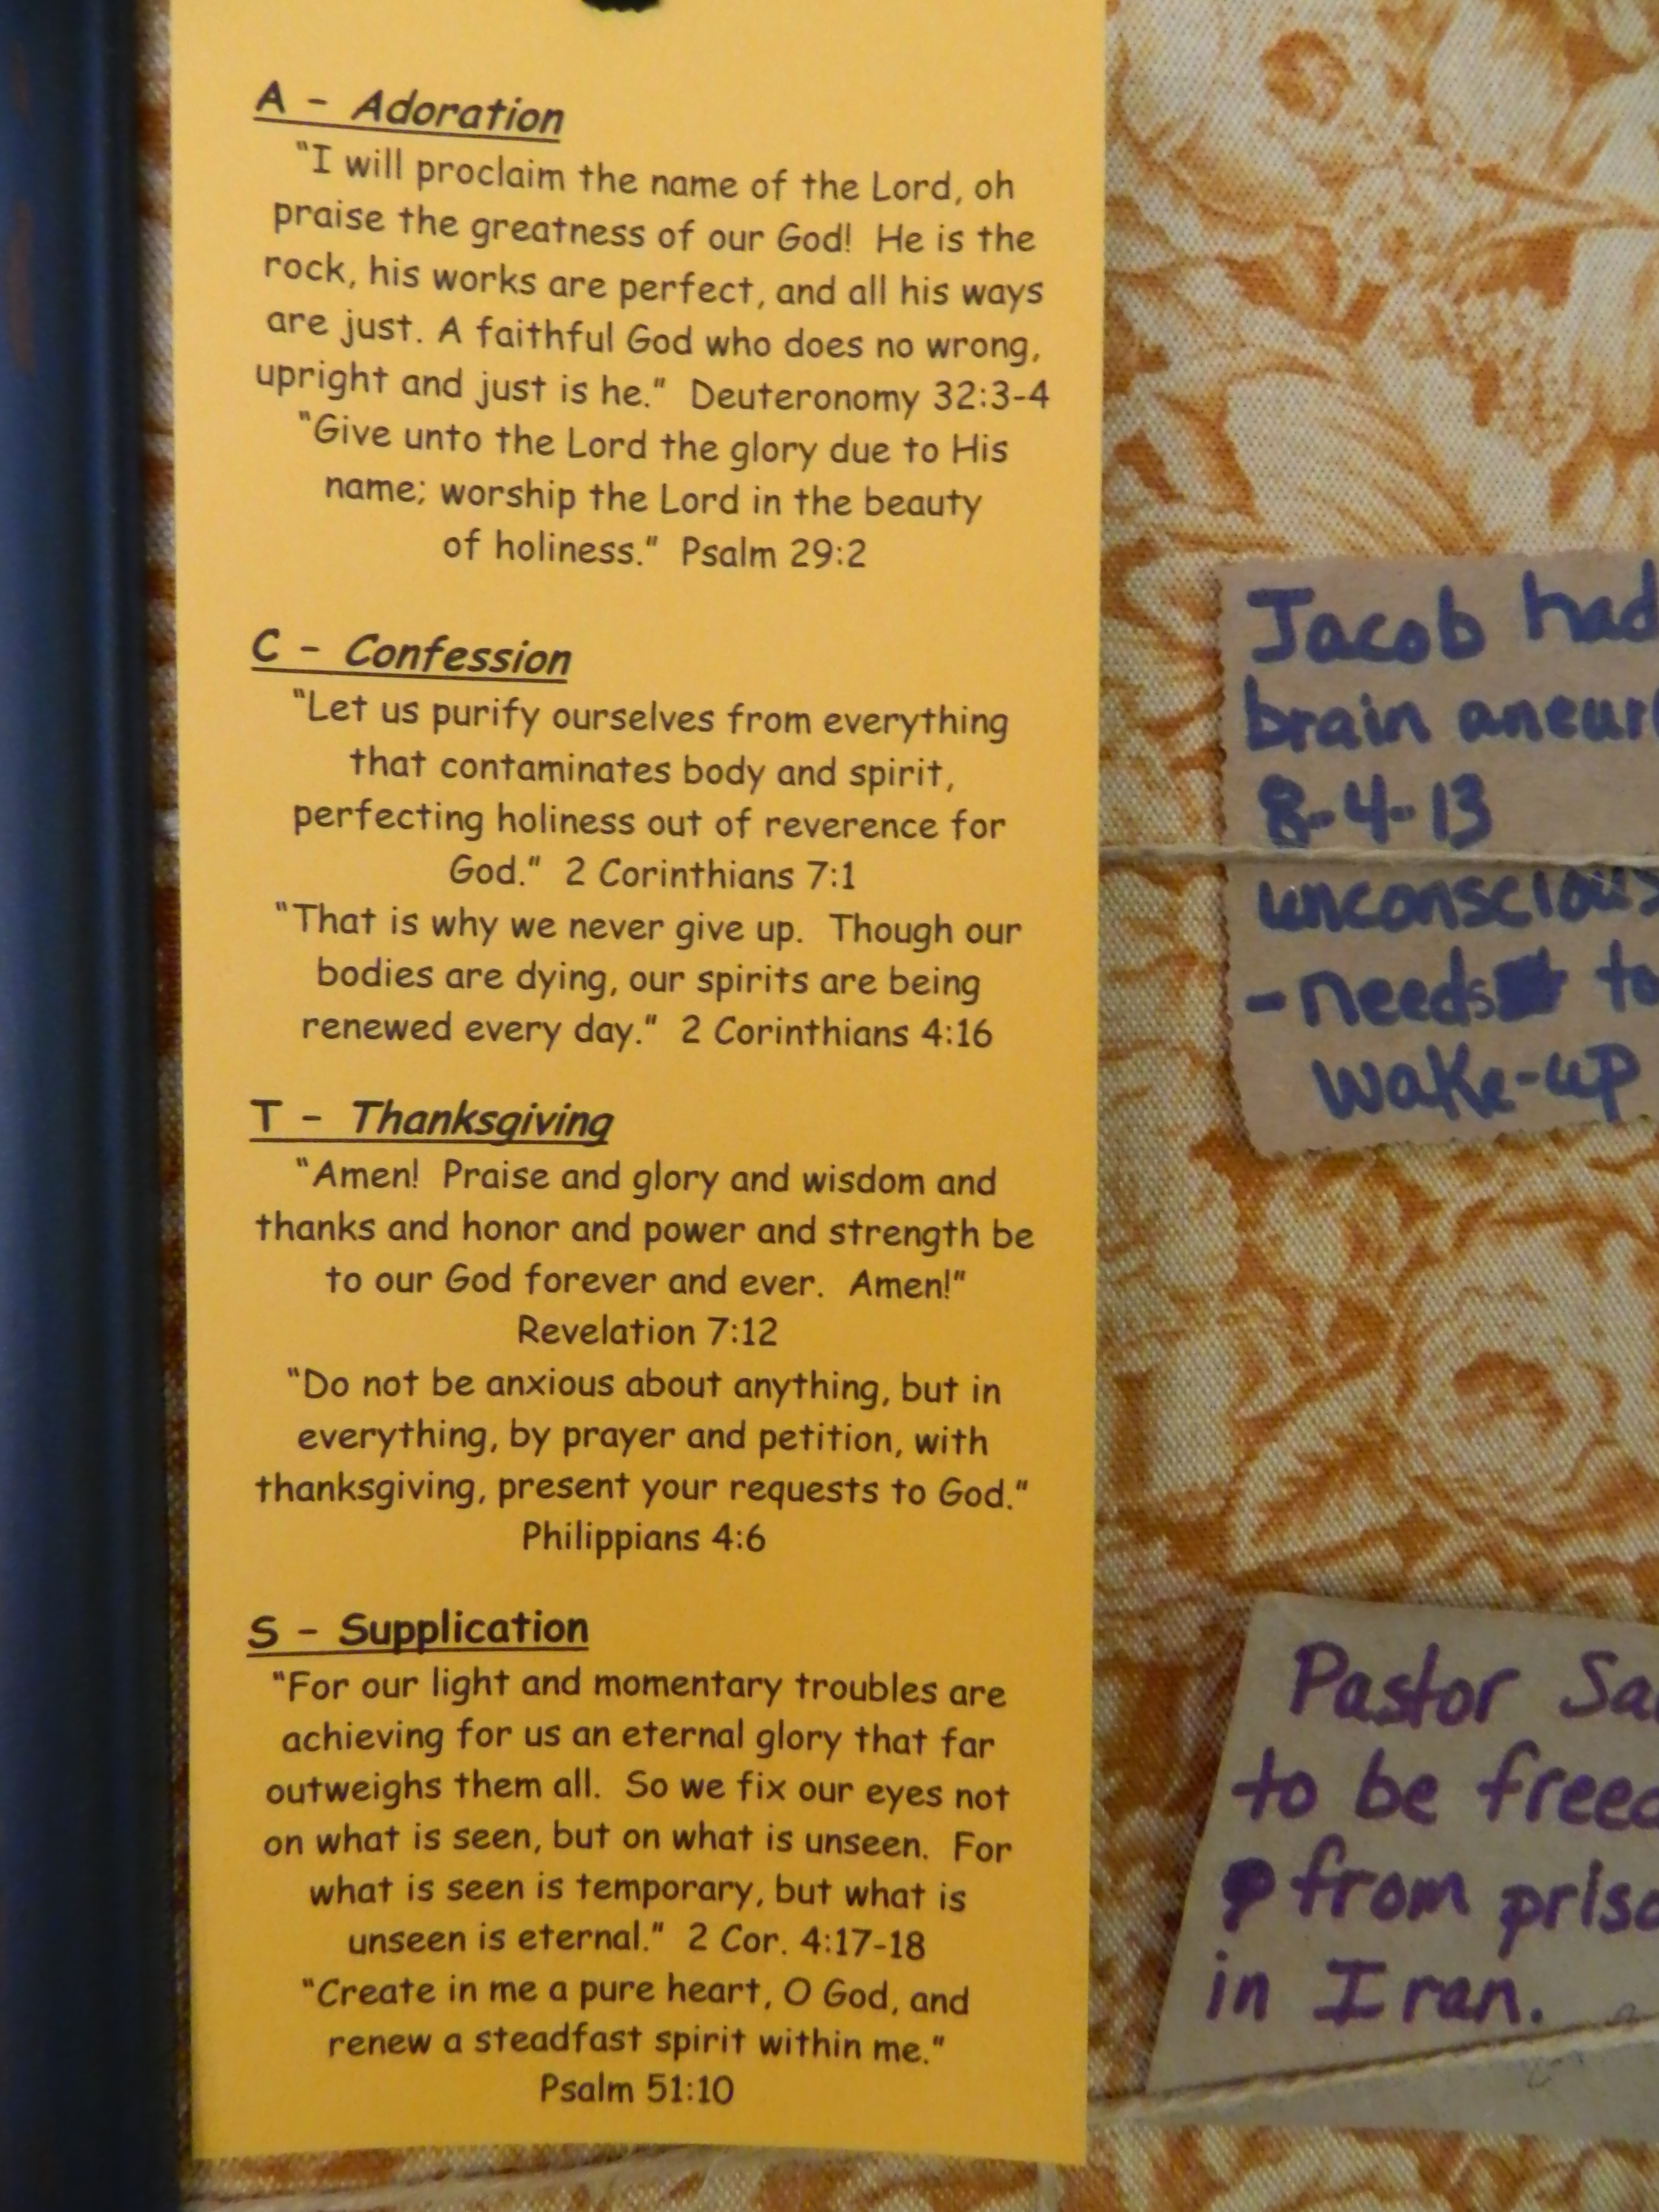 A - Adoration
"I will proclaim the name of the Lord, oh
praise the greatness of our God! He is the
rock, his works are perfect, and all his ways
are just. A faithful God who does no wrong,
upright and just is he." Deuteronomy 32:3-4
"Give unto the Lord the glory due to His
name; worship the Lord in the beauty
of holiness." Psalm 29:2
C - Confession
"Let us purify ourselves from everything
that contaminates body and spirit,
perfecting holiness out of reverence for
God." 2 Corinthians 7:1
"That is why we never give up. Though our
bodies are dying, our spirits are being
renewed every day." 2 Corinthians 4:16
T - Thanksgiving
"Amen! Praise and glory and wisdom and
thanks and honor and power and strength be
to our God forever and ever. Amen!"
Revelation 7:12
"Do not be anxious about anything, but in
everything, by prayer and petition, with
thanksgiving, present your requests to God."
Philippians 4:6
S - Supplication
"For our light and momentary troubles are
achieving for us an eternal glory that far
outweighs them all. So we fix our eyes not
on what is seen, but on what is unseen. For
what is seen is temporary, but what is
unseen is eternal." 2 Cor. 4:17-18
"Create in me a pure heart, O God, and
renew a steadfast spirit within me."
Psalm 51:10
Jacob had
brain
8-4-13
unconscious
- needs to
wake-up
Pastor
to be
from
in Iran.